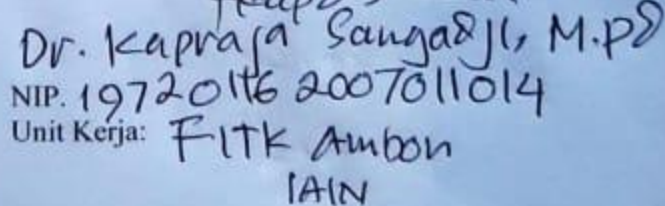 Dr. Kapraja Sangadji, M.Pd
NIP. 19720116 2007011014
Unit Kerja: FITK Ambon
IAIN